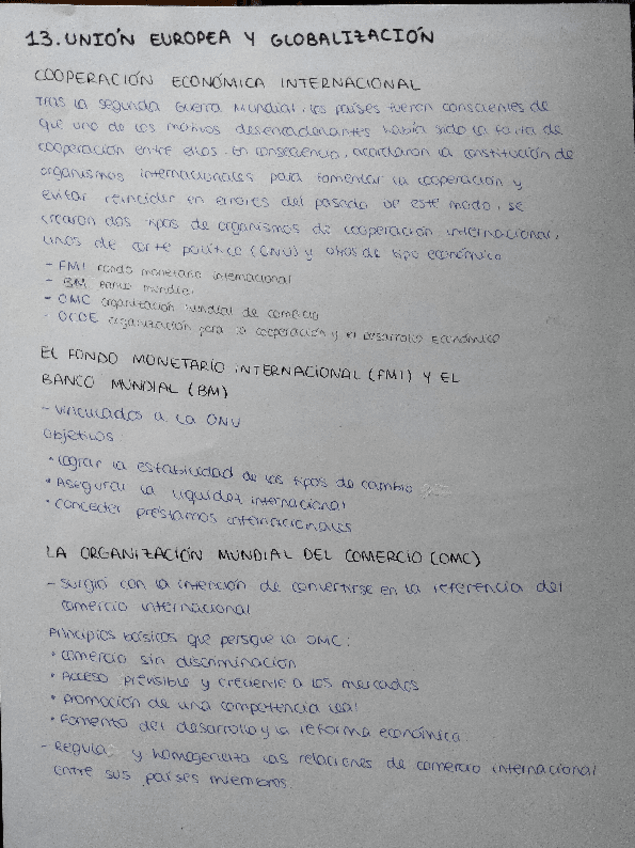 13. UNIÓN EUROPEA Y GLOBALIZACIÓN
COOPERACIÓN ECONÓMICA INTERNACIONAL
Tras la segunda Guerra Mundial, los países fueron conscientes de
que uno de los motivos desencadenantes había sido la falta de
cooperación entre ellos. En consecuencia, acordaron la constitución de
organismos internacionales para fomentar la cooperación y
evitar reincidir en errores del pasado. De este modo, se
crearon dos tipos de organismos de cooperación internacional,
unos de corte político (ONU) y otros de tipo económico
- FMI Fondo monetario internacional
- BM Banco mundial
- OMC organización mundial de comercio
- OCDE organización para la cooperación y el Desarrollo Económico
EL FONDO MONETARIO INTERNACIONAL (FMI) Y EL
BANCO MUNDIAL (BM)
- Vinculados a la ONU
Objetivos:
• Lograr la estabilidad de los tipos de cambio
• Asegurar la liquidez internacional
• Conceder préstamos internacionales
LA ORGANIZACIÓN MUNDIAL DEL COMERCIO (OMC)
- Surgió con la intención de convertirse en la referencia del
comercio internacional
Principios básicos que persigue la OMC:
• Comercio sin discriminación
• Acceso previsible y creciente a los mercados
• Promoción de una competencia leal
• Fomento del desarrollo y la reforma económica
- Regula y homogeneiza las relaciones de comercio internacional
entre sus países miembros.